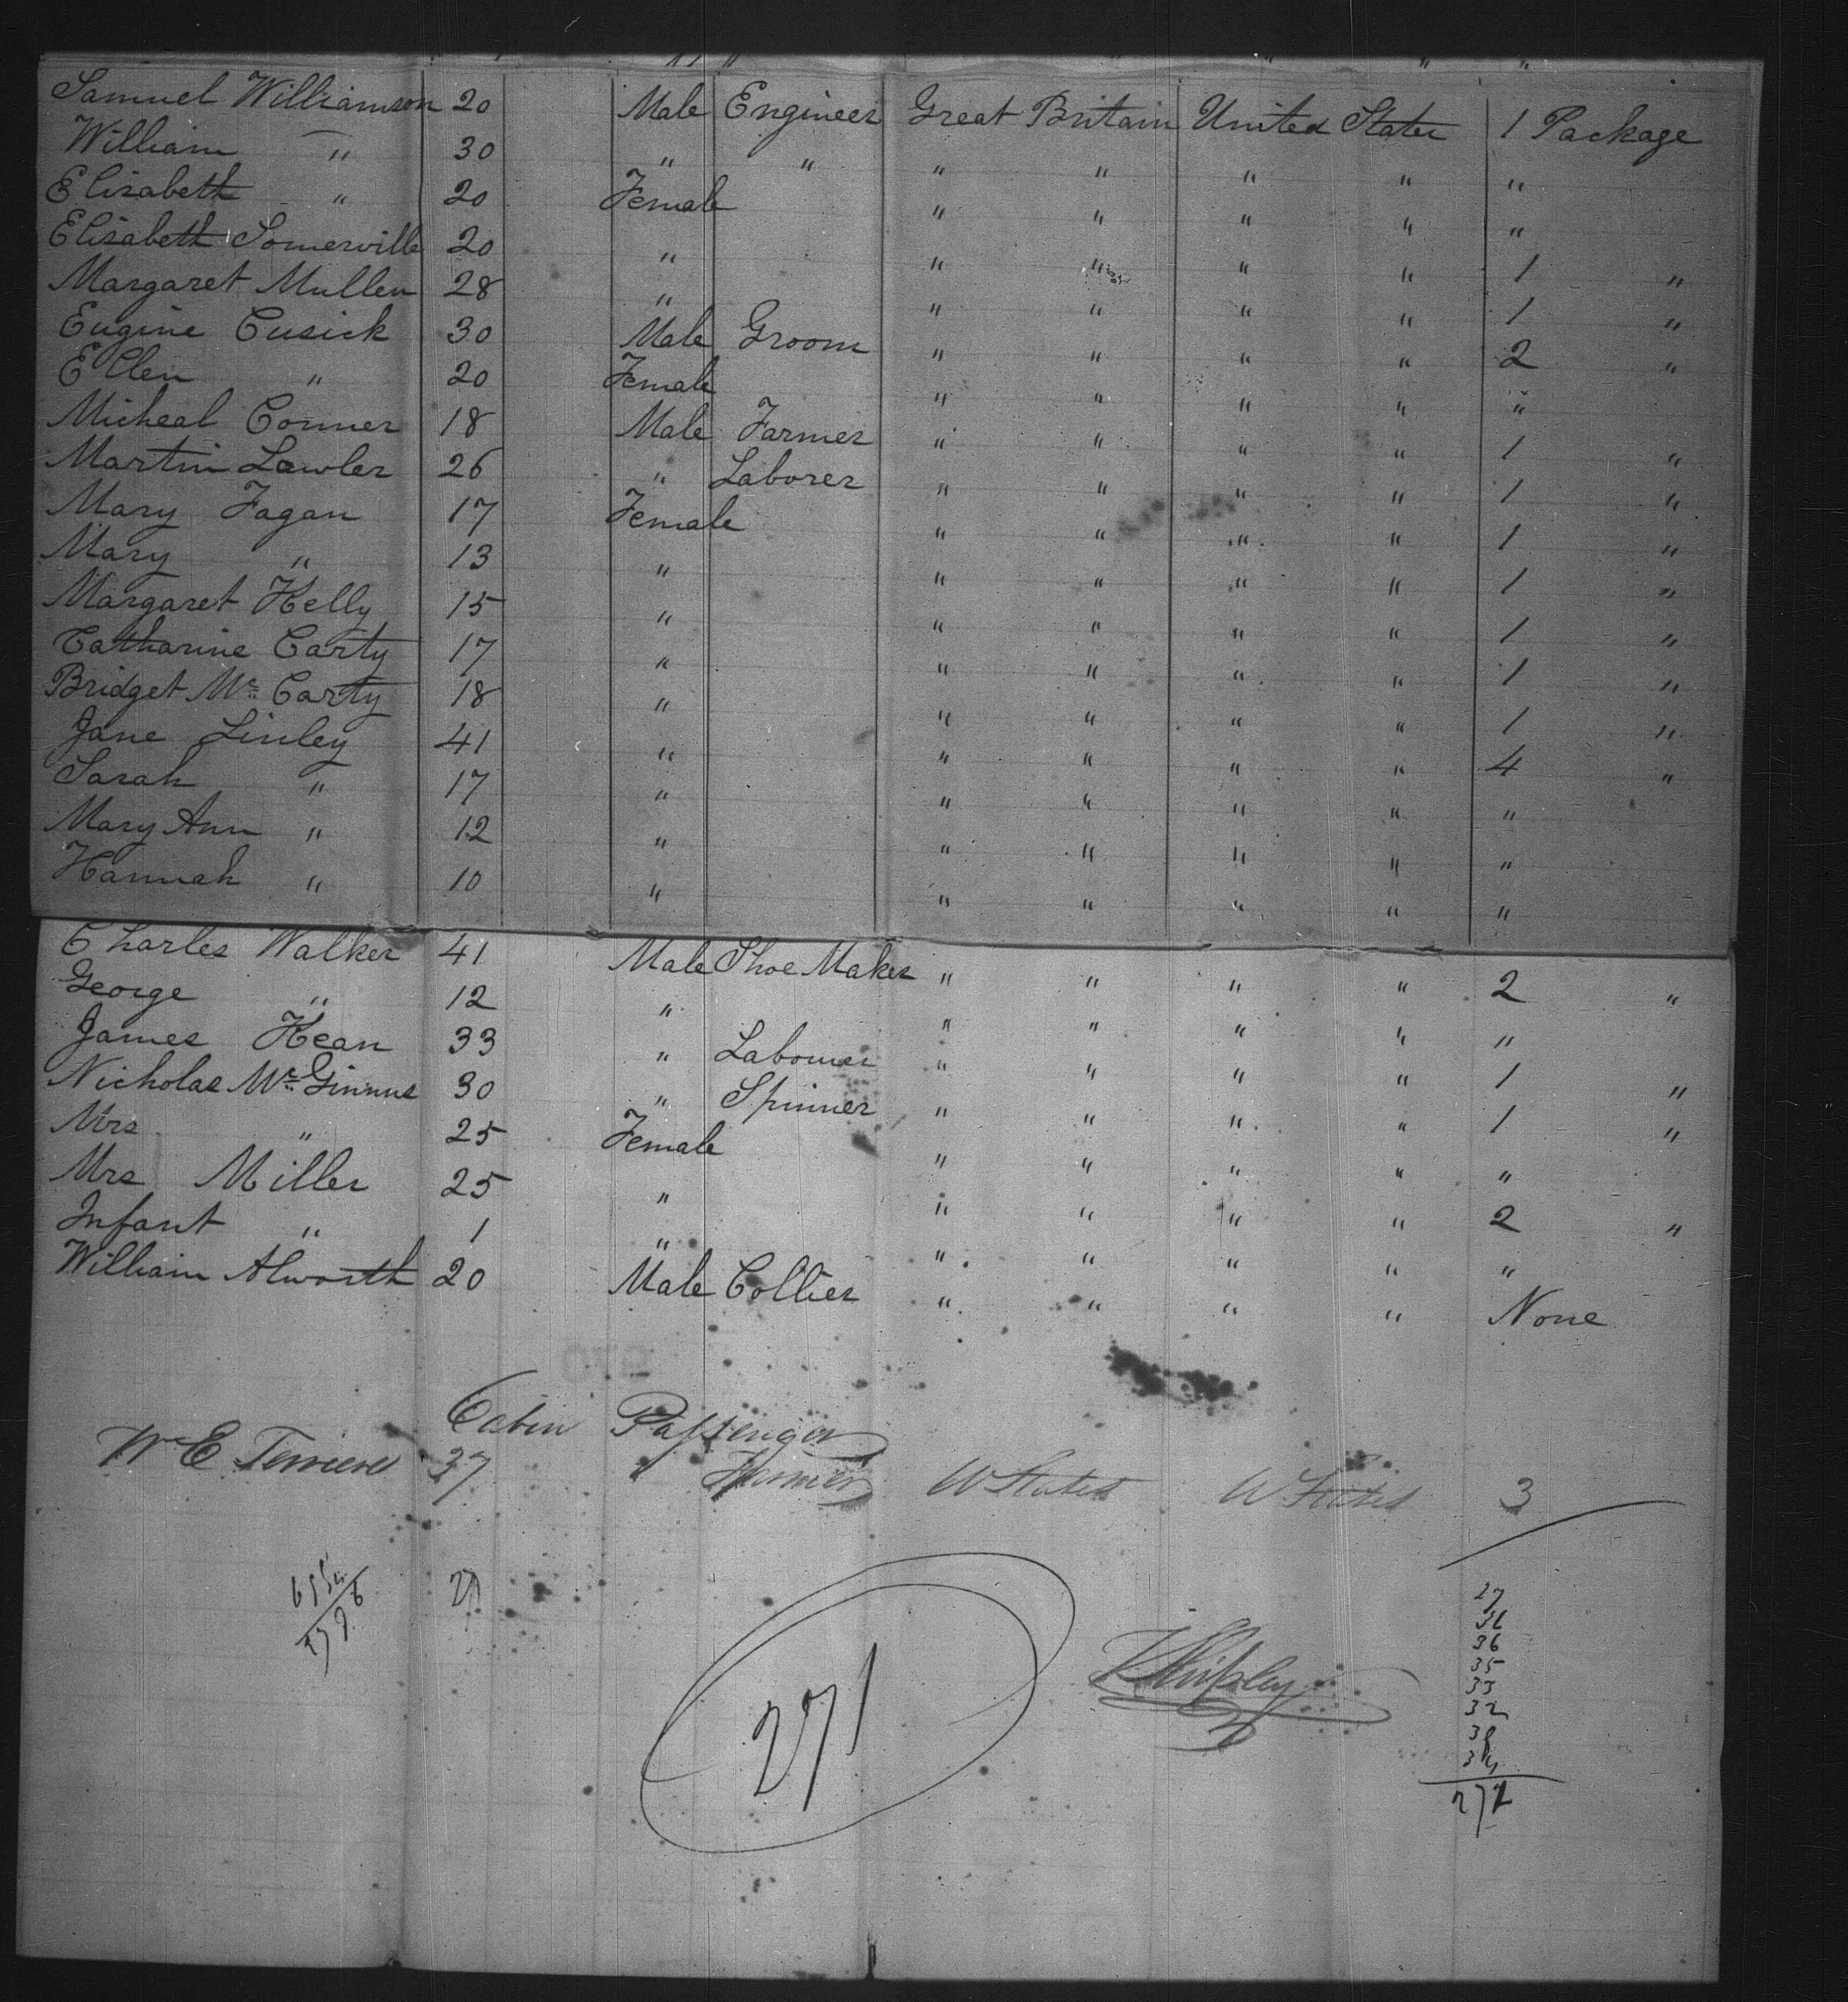 Samuel Williamson 20 Male Engineer Great Britain United States 1 Package
William " 30 " " " " " " "
Elisabeth " 20 Female " " " " "
Elisabeth Somerville 20 " " " " " 1 "
Margaret Mullen 28 " " " " " 1 "
Eugine Cusick 30 Male Groom " " " " 2 "
Ellen " 20 Female " " " " "
Micheal Conner 18 Male Farmer " " " " 1 "
Martin Lawler 26 " Laborer " " " " 1 "
Mary Fagan 17 Female " " " " 1 "
Mary " 13 " " " " " 1 "
Margaret Kelly 15 " " " " " 1 "
Catharine Carty 17 " " " " " 1 "
Bridget Mc Carty 18 " " " " " 1 "
Jane Linley 41 " " " " " 4 "
Sarah " 17 " " " " " "
Mary Ann " 12 " " " " " "
Hannah " 10 " " " " " "
Charles Walker 41 Male Shoe Maker " " " " 2 "
George " 12 " " " " " "
James Kean 33 " Labourer " " " " 1 "
Nicholas Mc Ginnus 30 " Spinner " " " " 1 "
Mrs " 25 Female " " " " "
Mrs Miller 25 " " " " " 2 "
Infant " 1 " " " " " "
William Alworth 20 Male Collier " " " " None
Cabin Passenger
W E 37 " Farmer U States U States 3
27
27
36
36
35
33
32
38
34
271
271